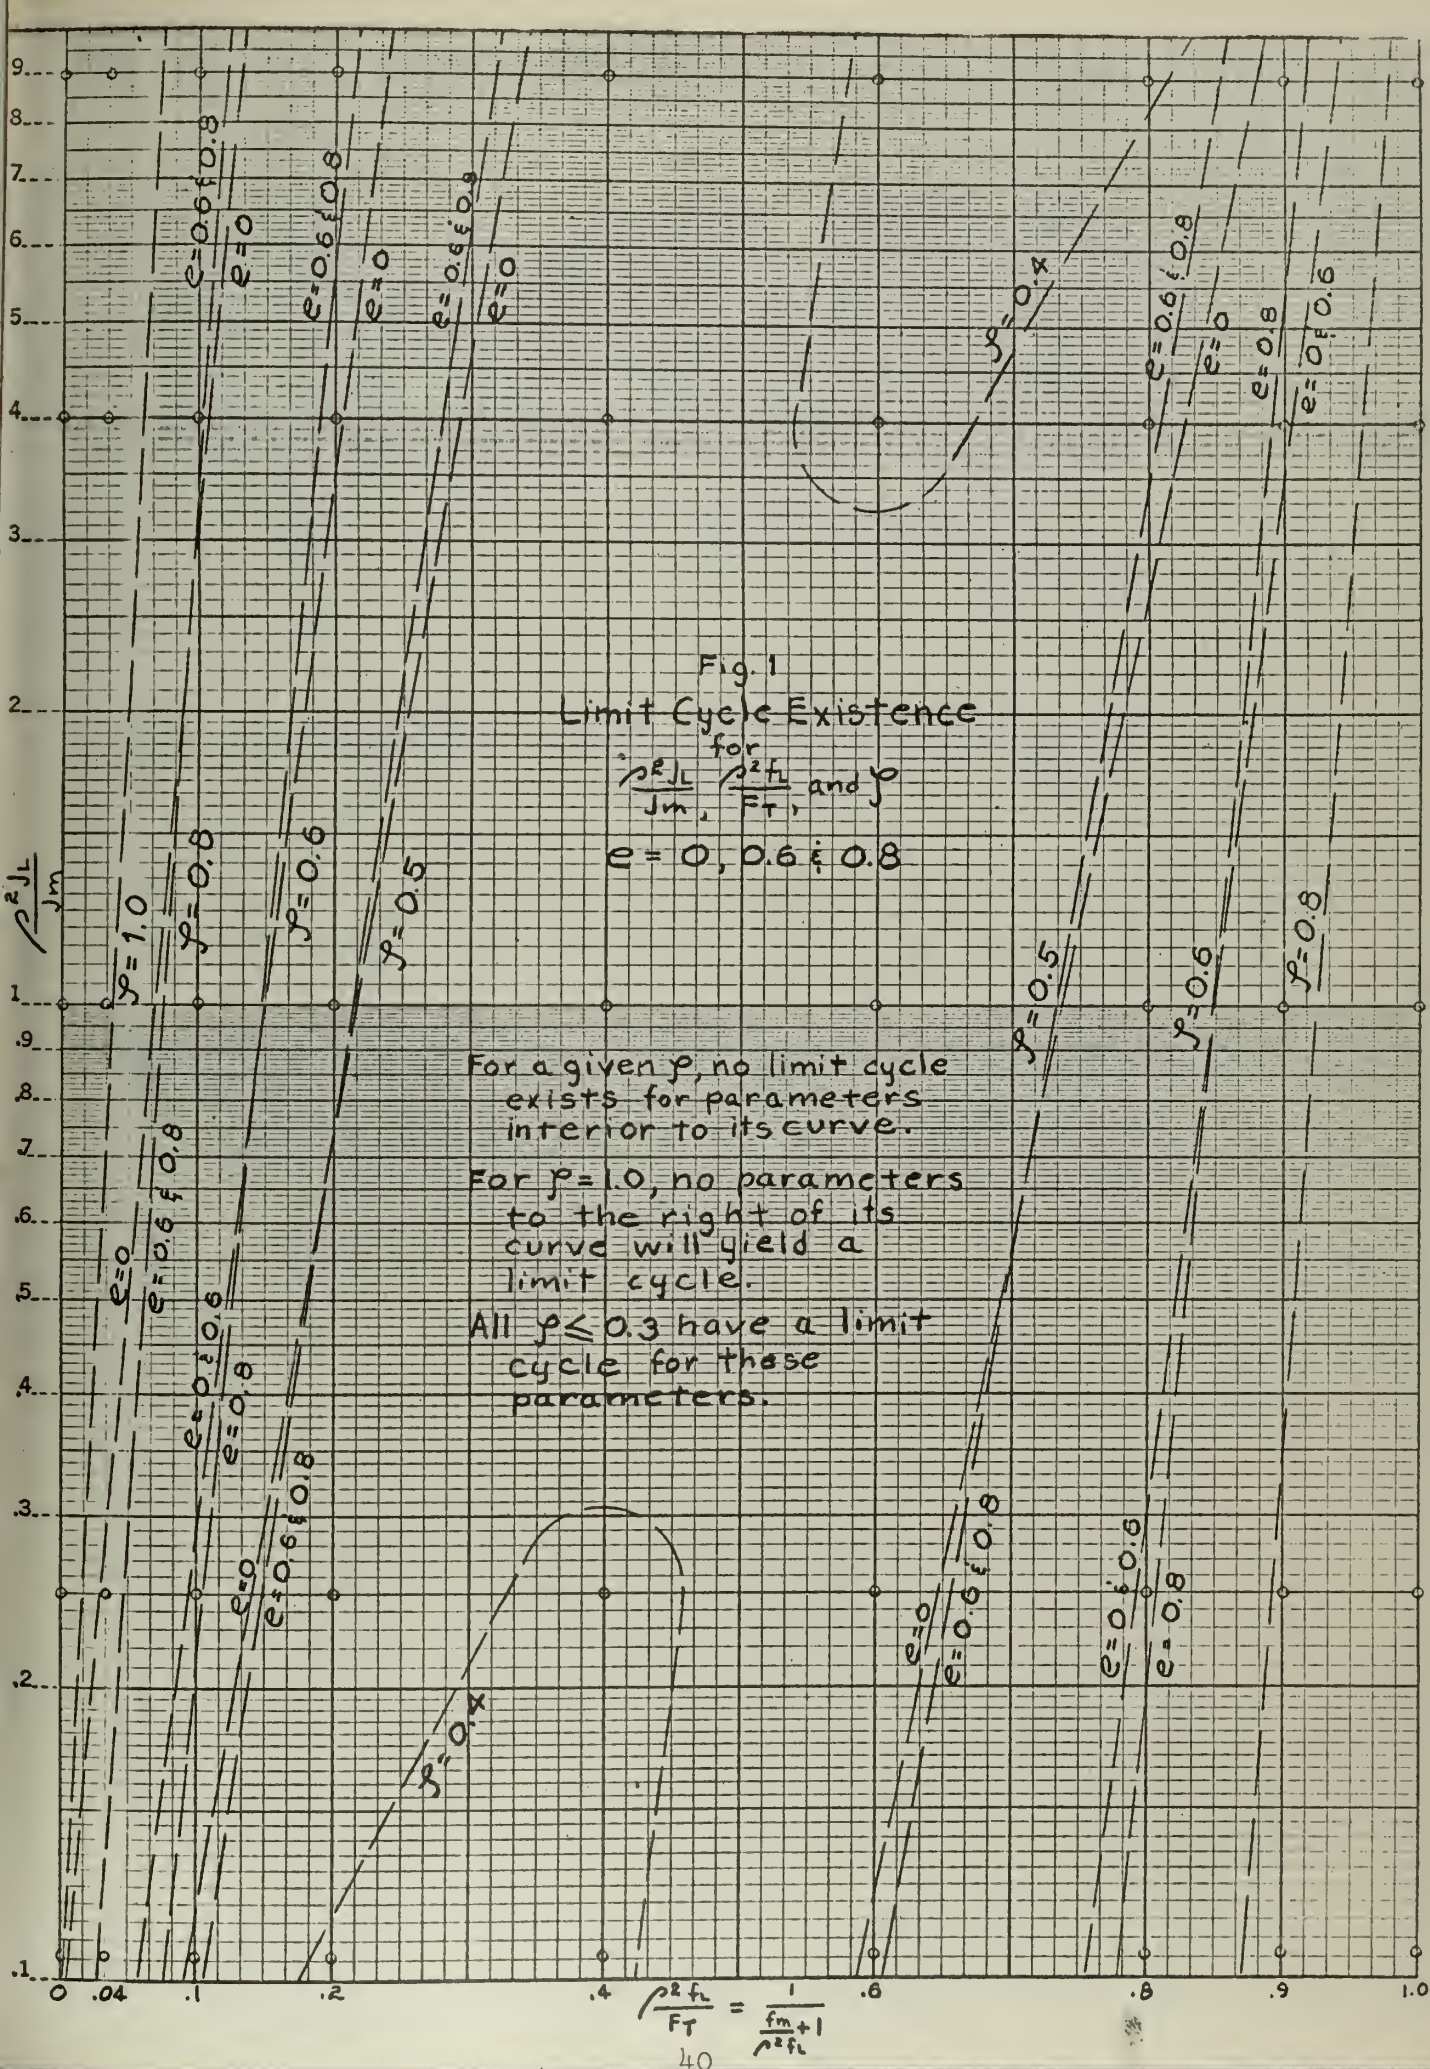 9
8
7
6
5
4
3
2
1
.9
.8
.7
.6
.5
.4
.3
.2
.1
ρ²J_L / J_m
e=0.6 & 0.8
e=0
e=0.6 & 0.8
e=0
e=0.6 & 0.8
e=0
ζ=0.4
e=0.6 & 0.8
e=0
e=0.8
e=0 & 0.6
Fig. 1
Limit Cycle Existence
for
ρ²J_L / J_m, ρ²f_L / F_T, and ζ
e = 0, 0.6 & 0.8
ζ=1.0
ζ=0.8
ζ=0.6
ζ=0.5
ζ=0.5
ζ=0.6
ζ=0.8
For a given ζ, no limit cycle
exists for parameters
interior to its curve.
For ζ=1.0, no parameters
to the right of its
curve will yield a
limit cycle.
All ζ≤0.3 have a limit
cycle for these
parameters.
e=0
e=0.6 & 0.8
e=0 & 0.6
e=0.8
e=0
e=0.6 & 0.8
ζ=0.4
e=0
e=0.6 & 0.8
e=0 & 0.6
e=0.8
0 .04 .1 .2 .4 .6 .8 .9 1.0
ρ²f_L / F_T = 1 / (f_m / ρ²f_L + 1)
40